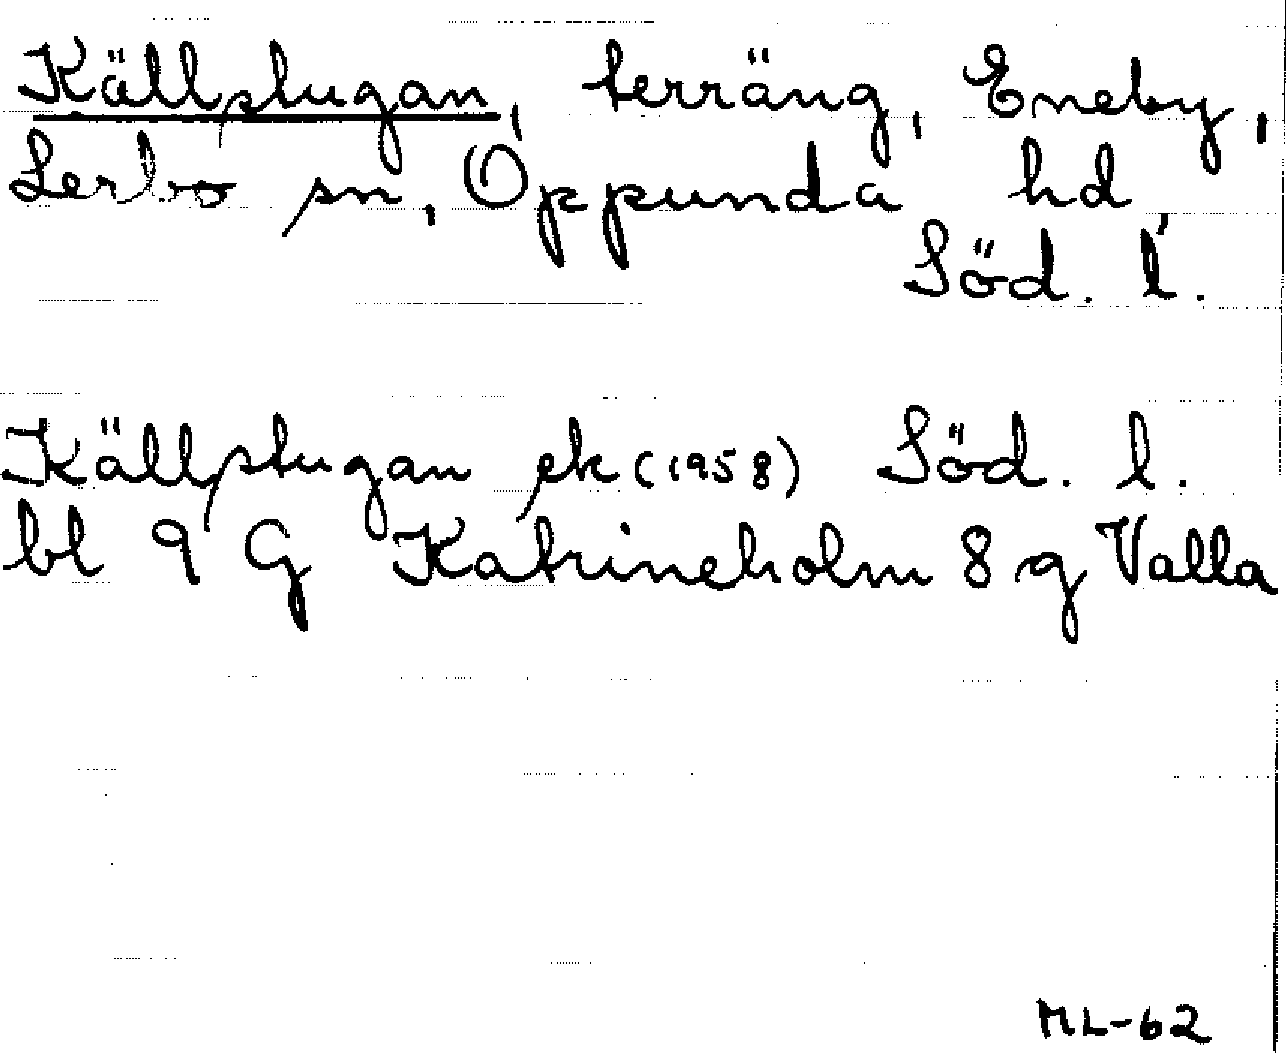 Källstugan, terräng, Eneby,
Lerbo sn, Oppunda hd
Söd. l.
Källstugan ek (1958) Söd. l.
bl 9 G Katrineholm 8 g Valla
ML-62